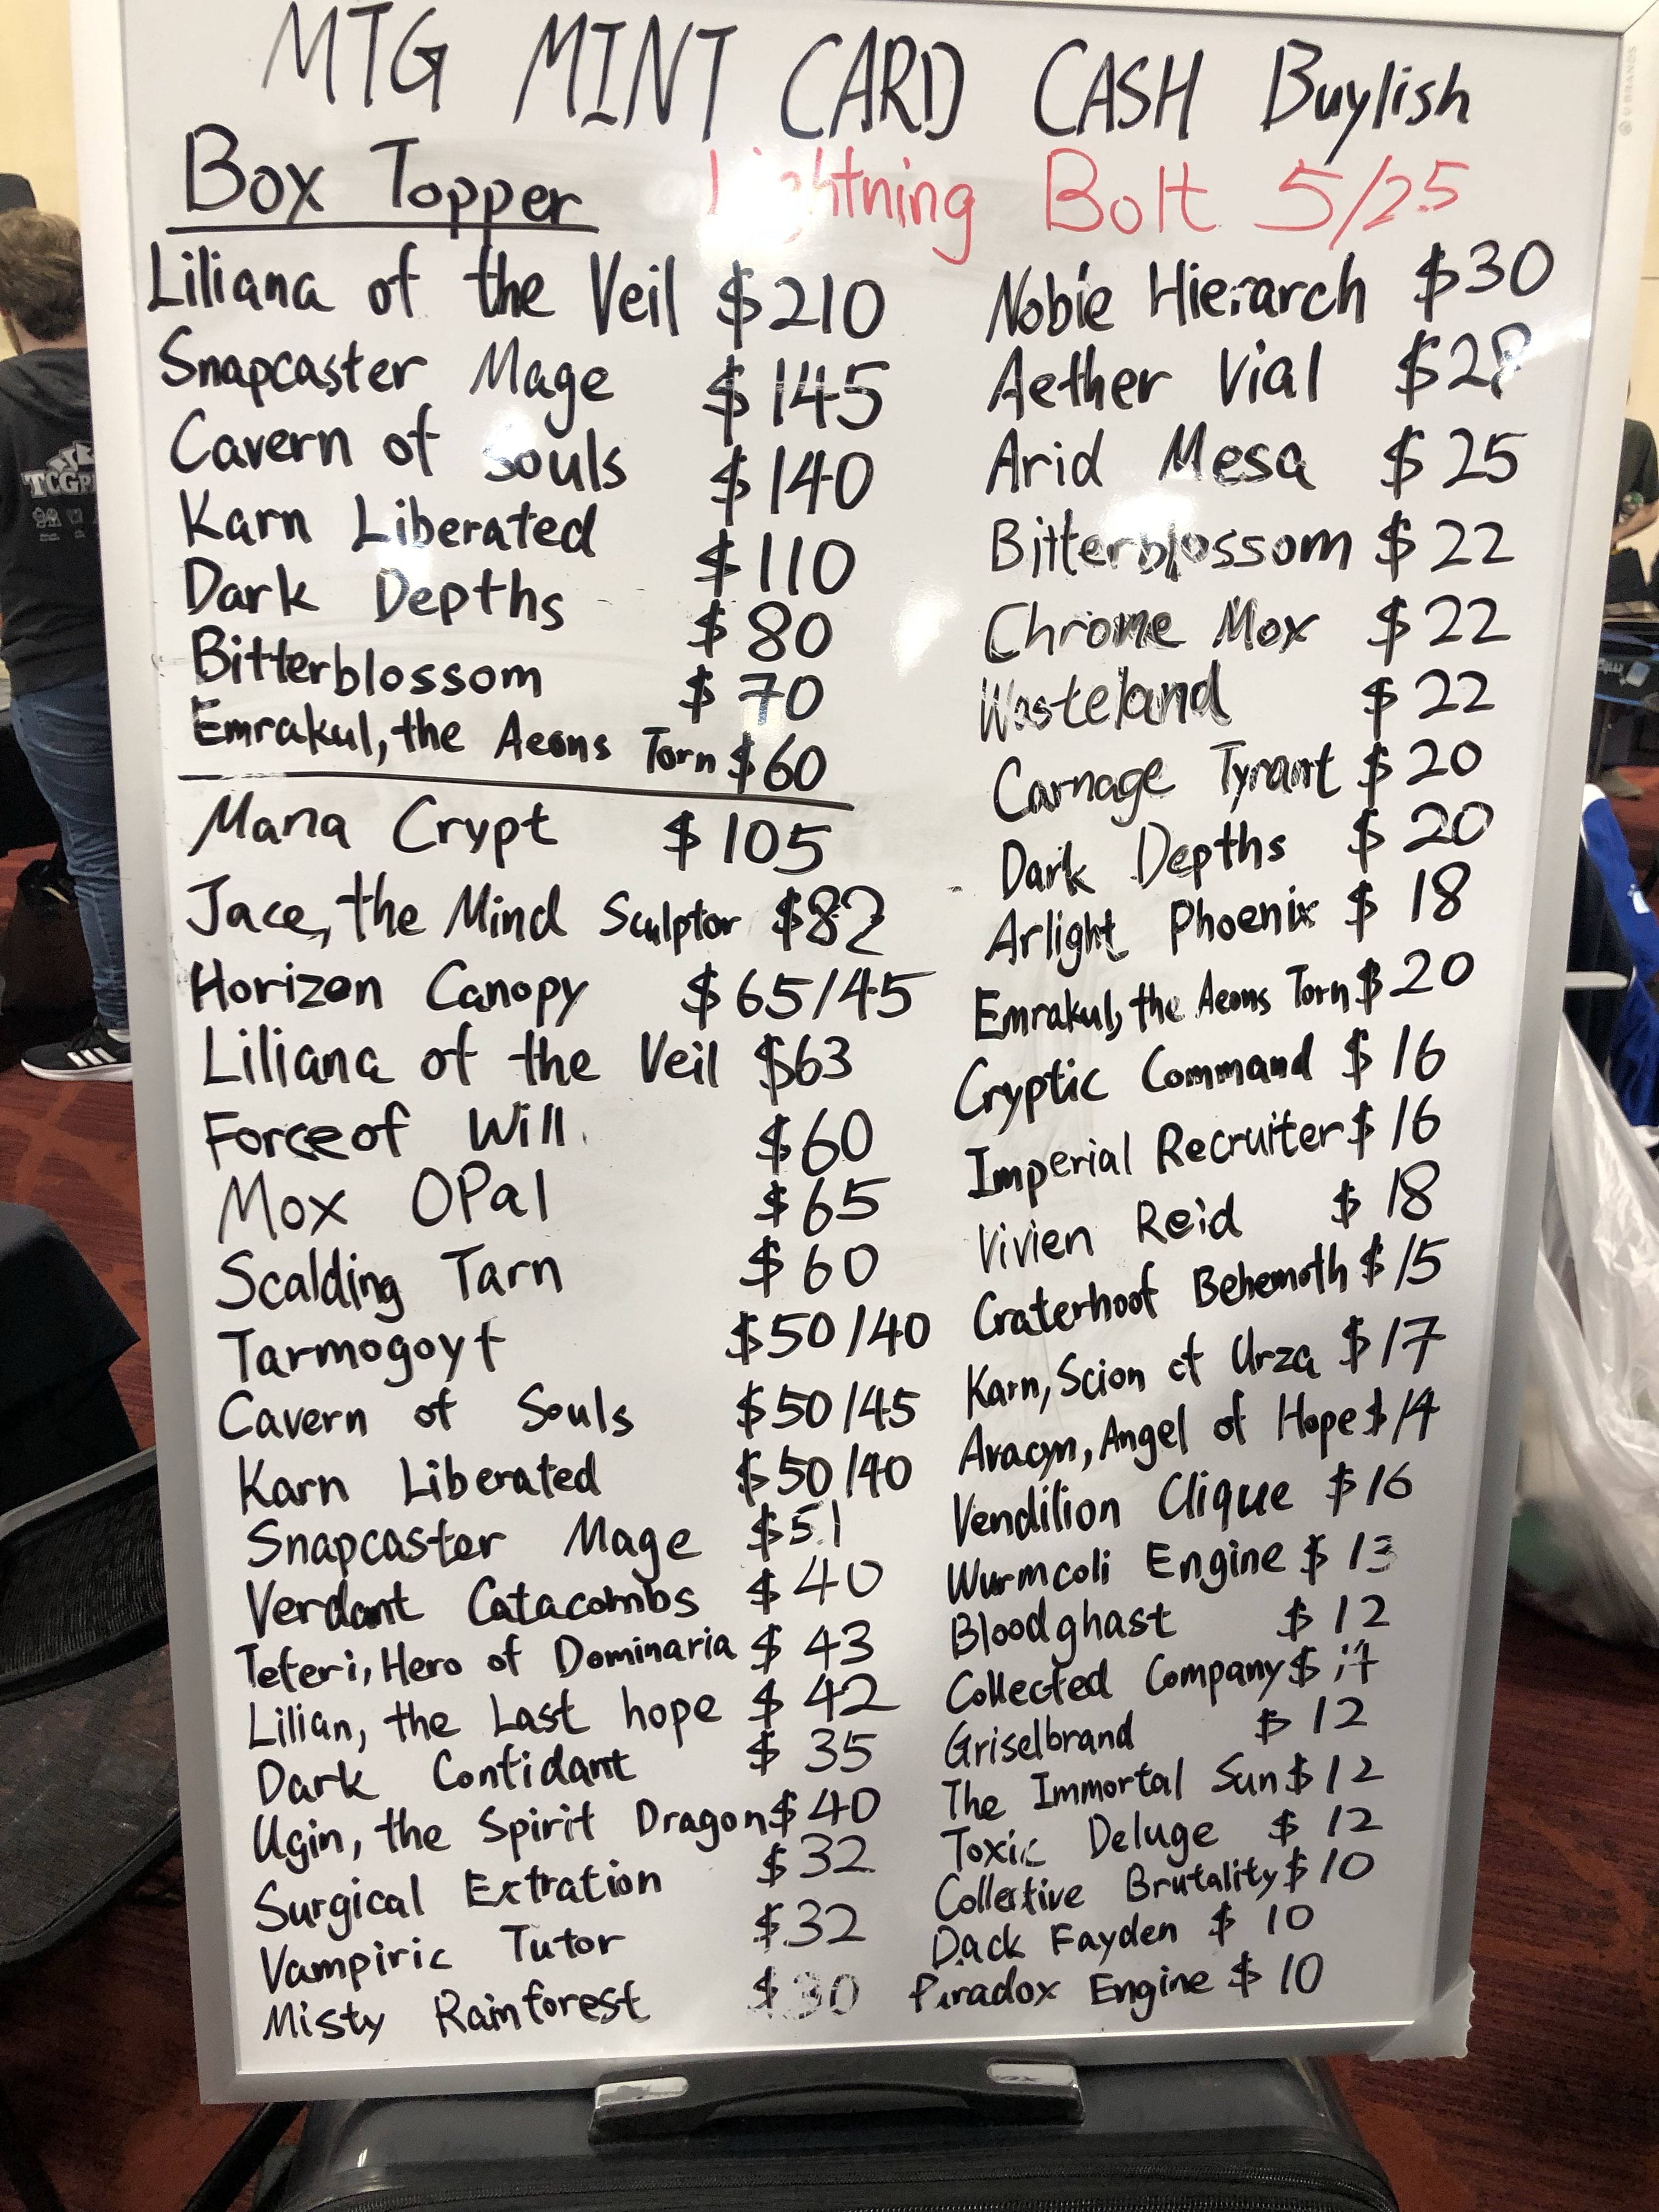 MTG MINT CARD CASH Buylish
Box Topper
Lightning Bolt 5/25
Liliana of the Veil $210
Snapcaster Mage $145
Cavern of Souls $140
Karn Liberated $110
Dark Depths $80
Bitterblossom $70
Emrakul, the Aeons Torn $60
Mana Crypt $105
Jace, the Mind Sculptor $82
Horizen Canopy $65/45
Liliana of the Veil $63
Force of Will $60
Mox OPal $65
Scalding Tarn $60
Tarmogoyf $50/40
Cavern of Souls $50/45
Karn Liberated $50/40
Snapcaster Mage $51
Verdant Catacombs $40
Teferi, Hero of Dominaria $43
Lilian, the Last hope $42
Dark Confidant $35
Ugin, the Spirit Dragon $40
Surgical Extration $32
Vampiric Tutor $32
Misty Rainforest $30
Noble Hierarch $30
Aether Vial $28
Arid Mesa $25
Bitterblossom $22
Chrome Mox $22
Wasteland $22
Carnage Tyrant $20
Dark Depths $20
Arlight Phoenix $18
Emrakul, the Aeons Torn $20
Cryptic Command $16
Imperial Recruiter $16
Vivien Reid $18
Craterhoof Behemoth $15
Karn, Scion of Urza $17
Avacyn, Angel of Hope $14
Vendilion Clique $16
Wurmcoli Engine $13
Bloodghast $12
Collected Company $
Griselbrand $12
The Immortal Sun $12
Toxic Deluge $12
Collective Brutality $10
Dack Fayden $10
Paradox Engine $10